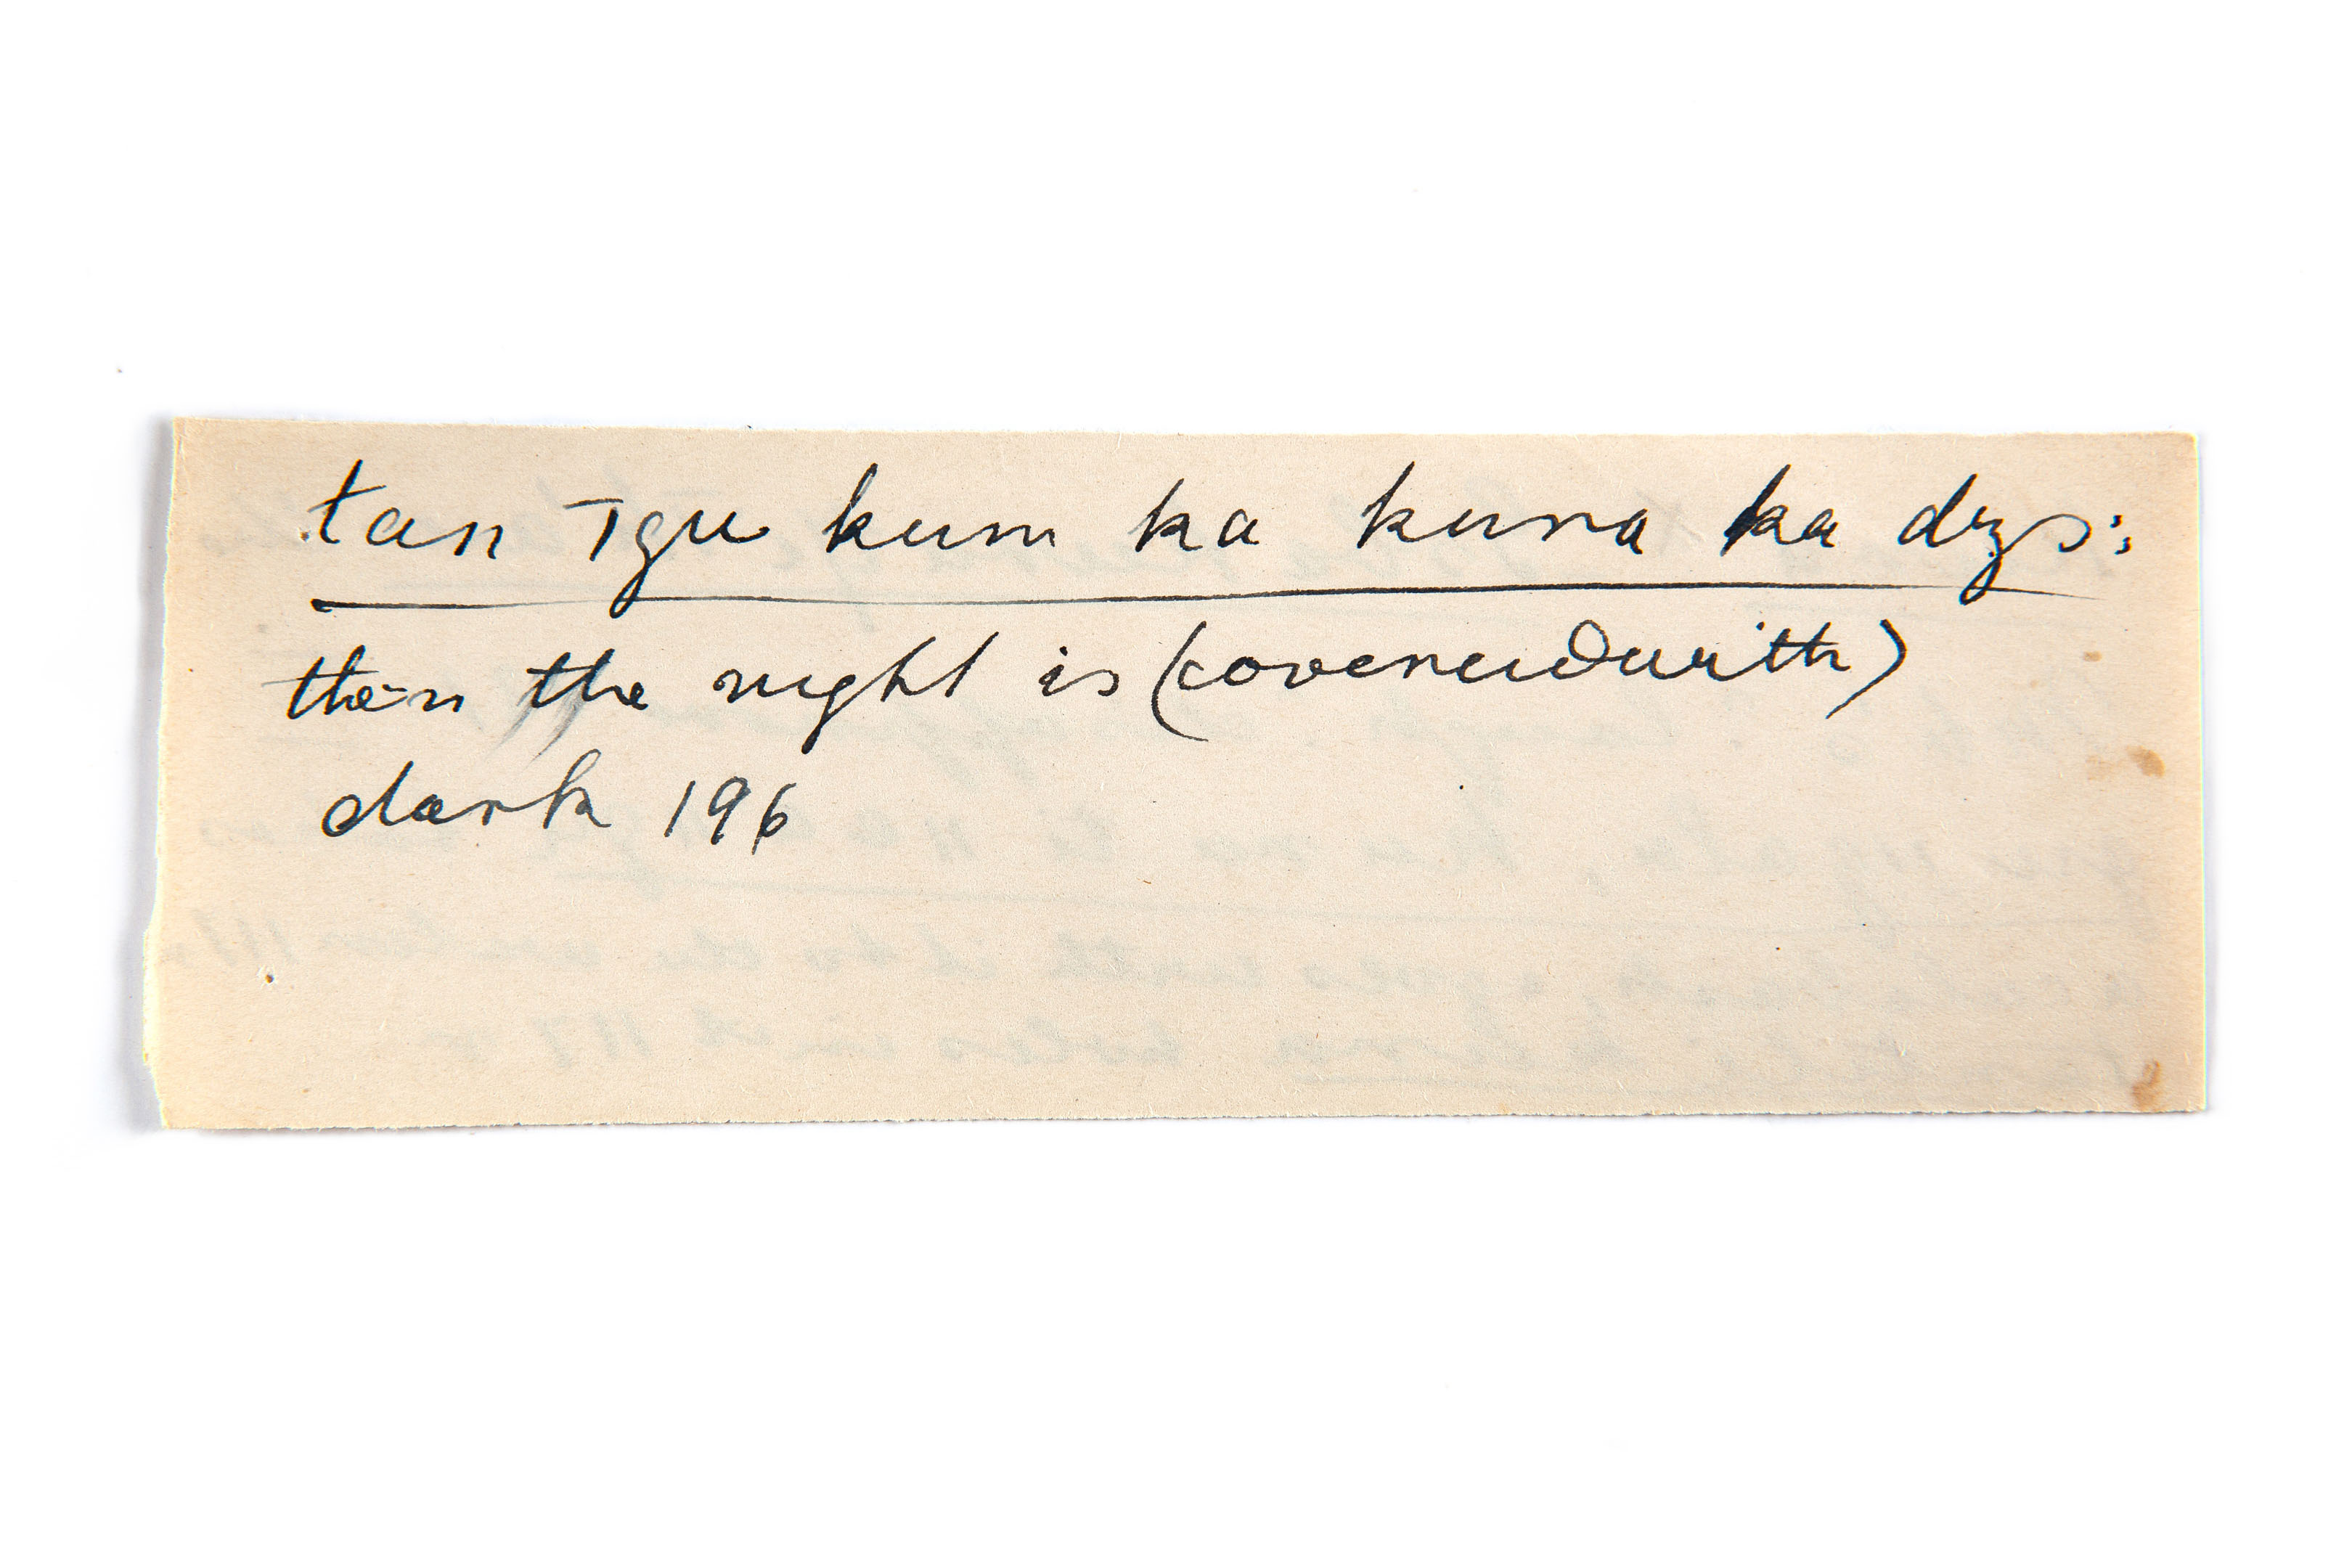 tan īgu kum ka kuna ka dzs:
then the night is (covered with)
dark 196